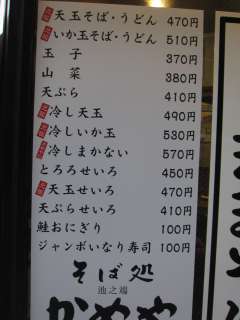 天玉そば・うどん 470円
いか玉そば・うどん 510円
玉子 370円
山菜 380円
天ぷら 410円
冷し天玉 490円
冷しいか玉 530円
冷しまかない 570円
とろろせいろ 450円
天玉せいろ 470円
天ぷらせいろ 410円
鮭おにぎり 100円
ジャンボいなり寿司 100円
そば処
池之端
かめや